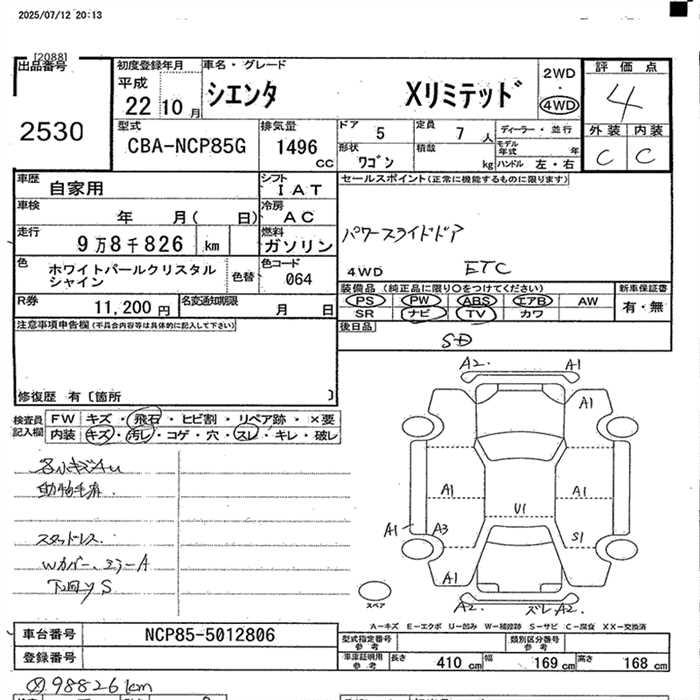 2025/07/12 20:13
[2088]
出品番号
2530
初度登録年月
平成
22 10 月
車名・グレード
シエンタ Xリミテッド
2WD
・
4WD
評価点
4
外装 内装
C C
型式
CBA-NCP85G
排気量
1496
CC
ドア 5
定員 7 人
形状 ワゴン
積載 kg
ディーラー・並行
モデル年式 年
ハンドル 左・右
車歴 自家用
シフト
IAT
車検 年 月( 日)
冷房 AC
走行 9万8千826 km
燃料
ガソリン
色 ホワイトパールクリスタルシャイン
色替
色コード
064
R券 11,200円
名変通知期限 月 日
セールスポイント(正常に機能するものに限ります)
パワースライドドア
4WD ETC
装備品(純正品に限り○をつけてください)
新車保証書
PS PW ABS エアB AW
SR ナビ TV カワ
有・無
後日品
SD
注意事項申告欄(不具合内容等は具体的に記入して下さい)
修復歴 有〔箇所 〕
検査員記入欄
FW キズ・飛石・ヒビ割・リペア跡・×要
内装 キズ・汚レ・コゲ・穴・スレ・キレ・破レ
スタッドレス
Wカバー、ミラーA
A2. A1
A1
A1 A1
U1
A1 A3 S1
A1
A2. ズレA2.
スペア
A-キズ E-エクボ U-凹み W-補修跡 S-サビ C-腐食 XX-交換済
車台番号 NCP85-5012806
登録番号
型式指定番号
参考
類別区分番号
参考
車庫証明用
参考
長さ 410 cm 幅 169 cm 高さ 168 cm
98826km